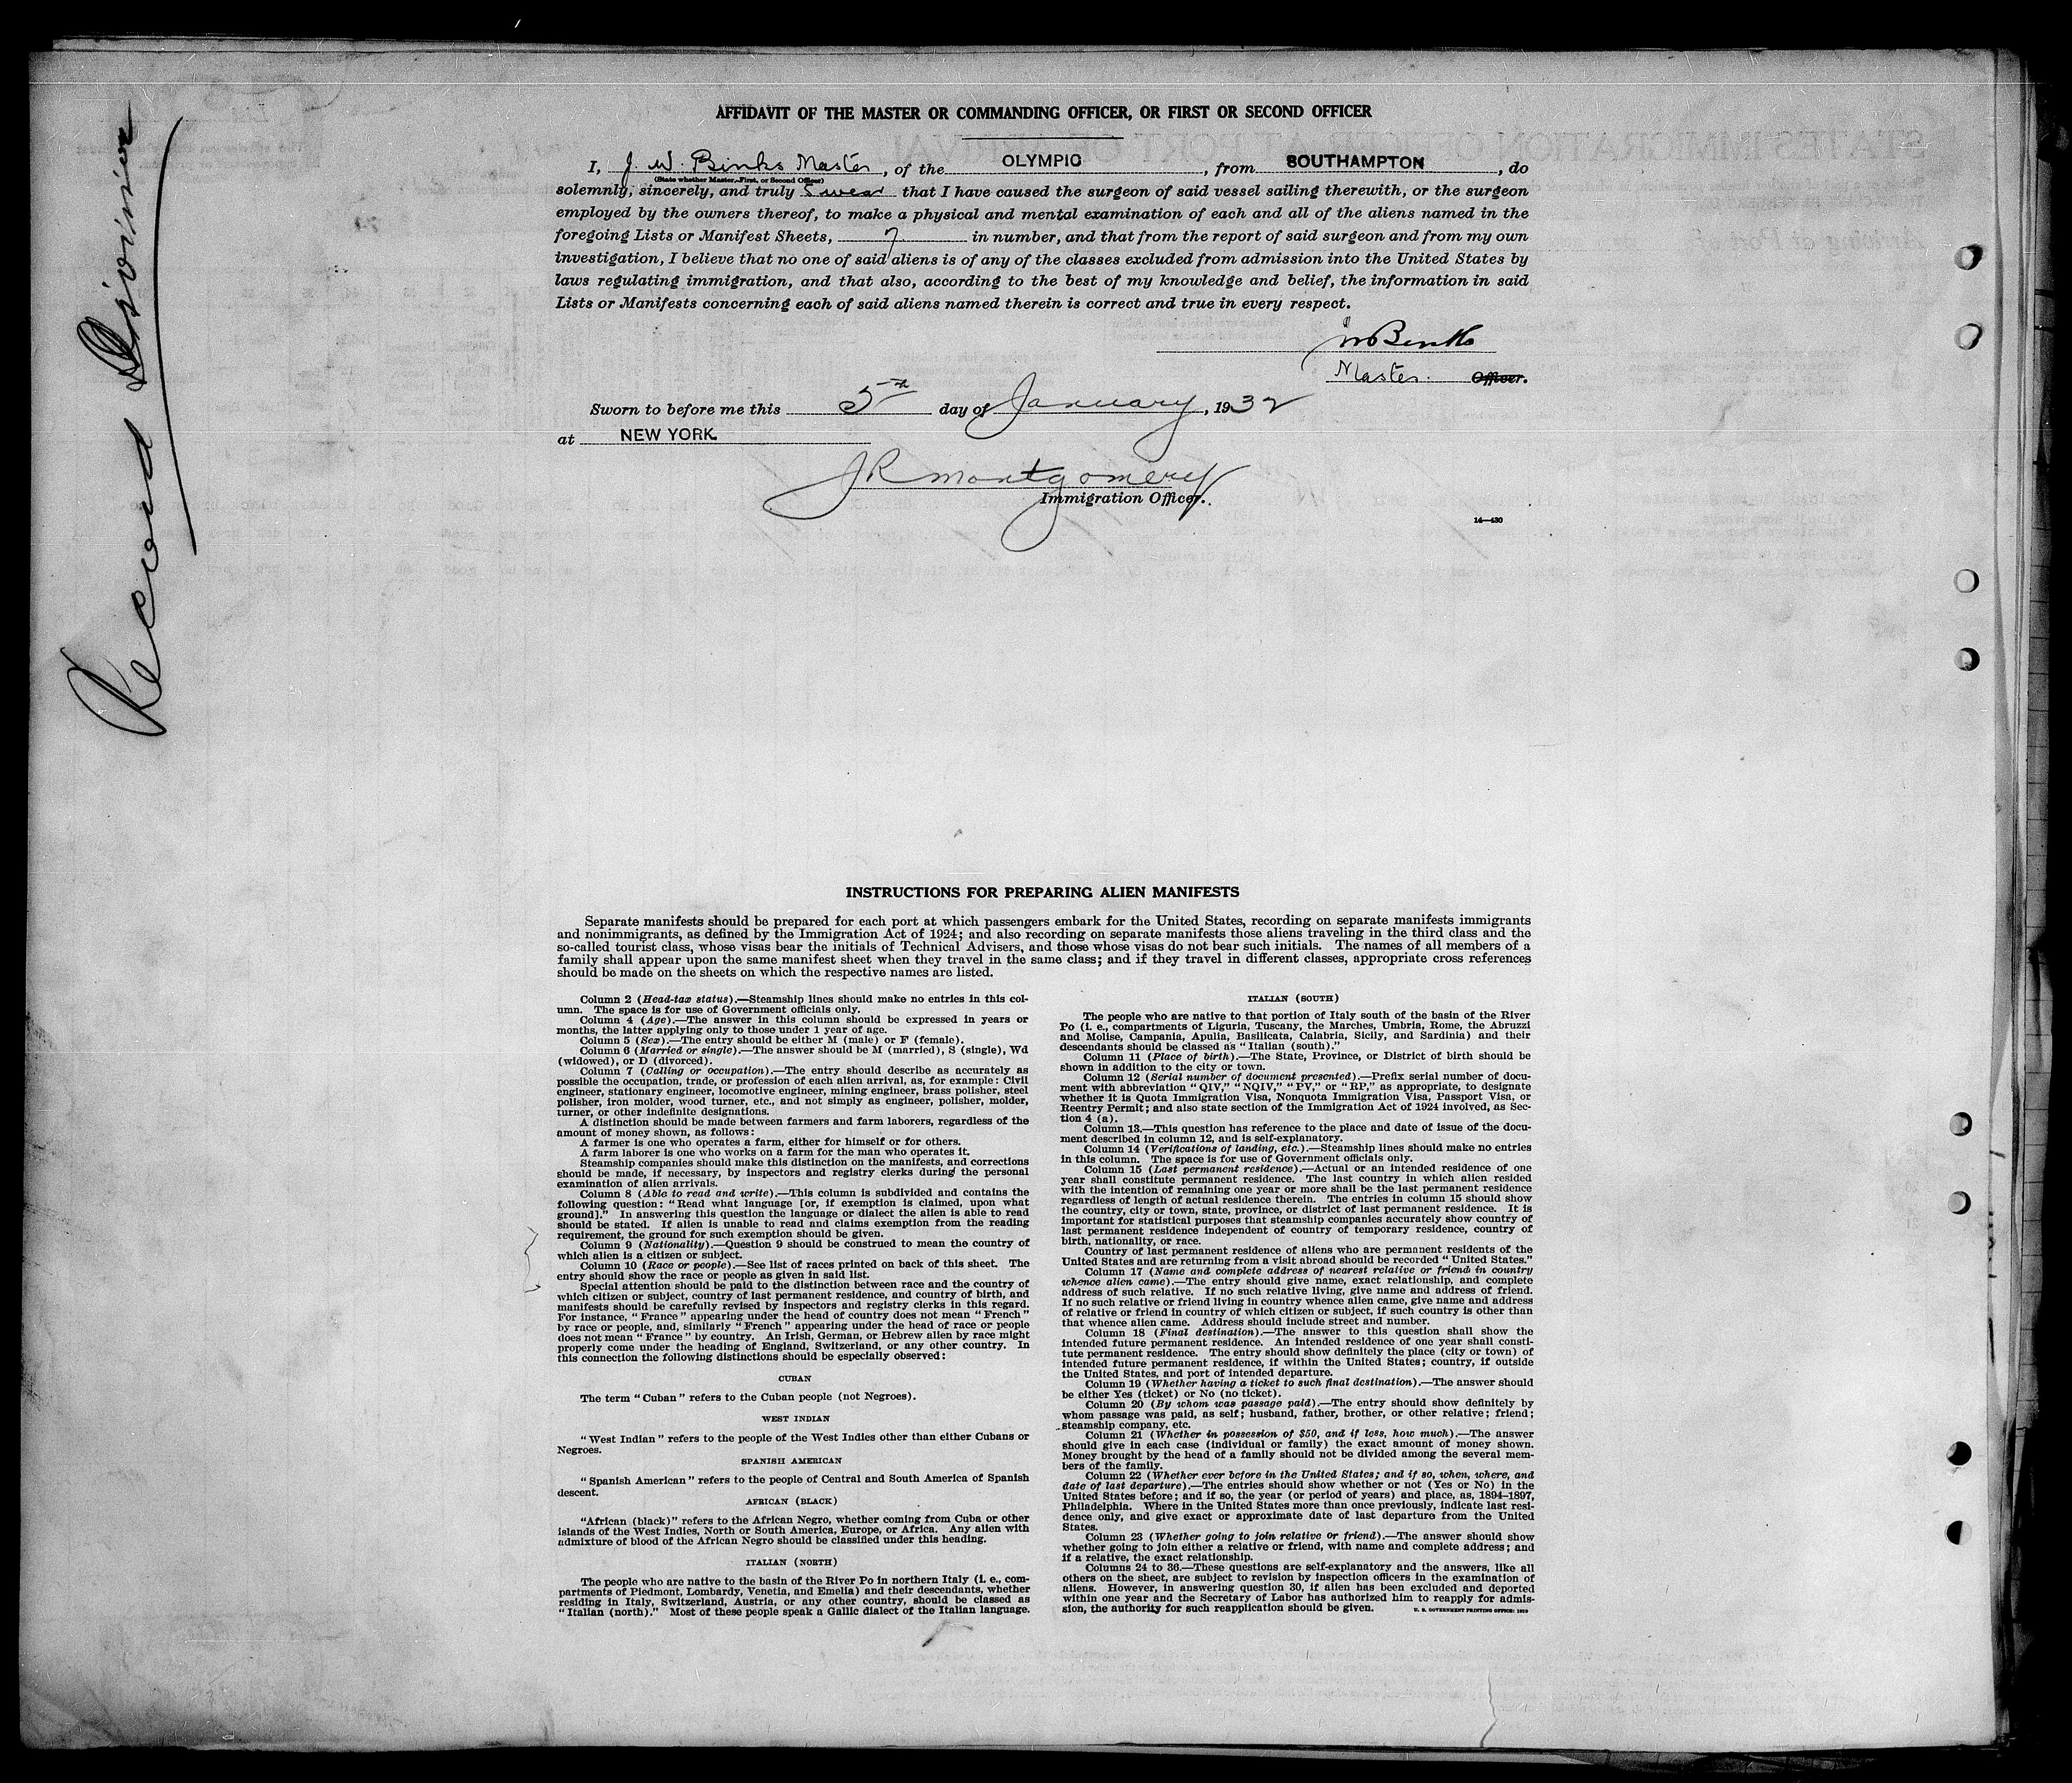 Record Division
AFFIDAVIT OF THE MASTER OR COMMANDING OFFICER, OR FIRST OR SECOND OFFICER
I, J. W. Binks Master, of the OLYMPIC, from SOUTHAMPTON, do
(State whether Master, First, or Second Officer)
solemnly, sincerely, and truly swear that I have caused the surgeon of said vessel sailing therewith, or the surgeon
employed by the owners thereof, to make a physical and mental examination of each and all of the aliens named in the
foregoing Lists or Manifest Sheets, 7 in number, and that from the report of said surgeon and from my own
investigation, I believe that no one of said aliens is of any of the classes excluded from admission into the United States by
laws regulating immigration, and that also, according to the best of my knowledge and belief, the information in said
Lists or Manifests concerning each of said aliens named therein is correct and true in every respect.
JWBinks
Master Officer.
Sworn to before me this 5th day of January, 1932
at NEW YORK.
JR Montgomery
Immigration Officer.
14—430
INSTRUCTIONS FOR PREPARING ALIEN MANIFESTS
Separate manifests should be prepared for each port at which passengers embark for the United States, recording on separate manifests immigrants
and nonimmigrants, as defined by the Immigration Act of 1924; and also recording on separate manifests those aliens traveling in the third class and the
so-called tourist class, whose visas bear the initials of Technical Advisers, and those whose visas do not bear such initials. The names of all members of a
family shall appear upon the same manifest sheet when they travel in the same class; and if they travel in different classes, appropriate cross references
should be made on the sheets on which the respective names are listed.
Column 2 (Head-tax status).—Steamship lines should make no entries in this col-
umn. The space is for use of Government officials only.
Column 4 (Age).—The answer in this column should be expressed in years or
months, the latter applying only to those under 1 year of age.
Column 5 (Sex).—The entry should be either M (male) or F (female).
Column 6 (Married or single).—The answer should be M (married), S (single), Wd
(widowed), or D (divorced).
Column 7 (Calling or occupation).—The entry should describe as accurately as
possible the occupation, trade, or profession of each alien arrival, as, for example: Civil
engineer, stationary engineer, locomotive engineer, mining engineer, brass polisher, steel
polisher, iron molder, wood turner, etc., and not simply as engineer, polisher, molder,
turner, or other indefinite designations.
A distinction should be made between farmers and farm laborers, regardless of the
amount of money shown, as follows:
A farmer is one who operates a farm, either for himself or for others.
A farm laborer is one who works on a farm for the man who operates it.
Steamship companies should make this distinction on the manifests, and corrections
should be made, if necessary, by inspectors and registry clerks during the personal
examination of alien arrivals.
Column 8 (Able to read and write).—This column is subdivided and contains the
following question: "Read what language [or, if exemption is claimed, upon what
ground]." In answering this question the language or dialect the alien is able to read
should be stated. If alien is unable to read and claims exemption from the reading
requirement, the ground for such exemption should be given.
Column 9 (Nationality).—Question 9 should be construed to mean the country of
which alien is a citizen or subject.
Column 10 (Race or people).—See list of races printed on back of this sheet. The
entry should show the race or people as given in said list.
Special attention should be paid to the distinction between race and the country of
which citizen or subject, country of last permanent residence, and country of birth, and
manifests should be carefully revised by inspectors and registry clerks in this regard.
For instance, "France" appearing under the head of country does not mean "French"
by race or people, and, similarly "French" appearing under the head of race or people
does not mean "France" by country. An Irish, German, or Hebrew alien by race might
properly come under the heading of England, Switzerland, or any other country. In
this connection the following distinctions should be especially observed:
CUBAN
The term "Cuban" refers to the Cuban people (not Negroes).
WEST INDIAN
"West Indian" refers to the people of the West Indies other than either Cubans or
Negroes.
SPANISH AMERICAN
"Spanish American" refers to the people of Central and South America of Spanish
descent.
AFRICAN (BLACK)
"African (black)" refers to the African Negro, whether coming from Cuba or other
islands of the West Indies, North or South America, Europe, or Africa. Any alien with
admixture of blood of the African Negro should be classified under this heading.
ITALIAN (NORTH)
The people who are native to the basin of the River Po in northern Italy (i. e., com-
partments of Piedmont, Lombardy, Venetia, and Emelia) and their descendants, whether
residing in Italy, Switzerland, Austria, or any other country, should be classed as
"Italian (north)." Most of these people speak a Gallic dialect of the Italian language.
ITALIAN (SOUTH)
The people who are native to that portion of Italy south of the basin of the River
Po (i. e., compartments of Liguria, Tuscany, the Marches, Umbria, Rome, the Abruzzi
and Molise, Campania, Apulia, Basilicata, Calabria, Sicily, and Sardinia) and their
descendants should be classed as "Italian (south)."
Column 11 (Place of birth).—The State, Province, or District of birth should be
shown in addition to the city or town.
Column 12 (Serial number of document presented).—Prefix serial number of docu-
ment with abbreviation "QIV," "NQIV," "PV," or "RP," as appropriate, to designate
whether it is Quota Immigration Visa, Nonquota Immigration Visa, Passport Visa, or
Reentry Permit; and also state section of the Immigration Act of 1924 involved, as Sec-
tion 4 (a).
Column 13.—This question has reference to the place and date of issue of the docu-
ment described in column 12, and is self-explanatory.
Column 14 (Verifications of landing, etc.).—Steamship lines should make no entries
in this column. The space is for use of Government officials only.
Column 15 (Last permanent residence).—Actual or an intended residence of one
year shall constitute permanent residence. The last country in which alien resided
with the intention of remaining one year or more shall be the last permanent residence
regardless of length of actual residence therein. The entries in column 15 should show
the country, city or town, state, province, or district of last permanent residence. It is
important for statistical purposes that steamship companies accurately show country of
last permanent residence independent of country of temporary residence, country of
birth, nationality, or race.
Country of last permanent residence of aliens who are permanent residents of the
United States and are returning from a visit abroad should be recorded "United States."
Column 17 (Name and complete address of nearest relative or friend in country
whence alien came).—The entry should give name, exact relationship, and complete
address of such relative. If no such relative living, give name and address of friend.
If no such relative or friend living in country whence alien came, give name and address
of relative or friend in country of which citizen or subject, if such country is other than
that whence alien came. Address should include street and number.
Column 18 (Final destination).—The answer to this question shall show the
intended future permanent residence. An intended residence of one year shall consti-
tute permanent residence. The entry should show definitely the place (city or town) of
intended future permanent residence, if within the United States; country, if outside
the United States, and port of intended departure.
Column 19 (Whether having a ticket to such final destination).—The answer should
be either Yes (ticket) or No (no ticket).
Column 20 (By whom was passage paid).—The entry should show definitely by
whom passage was paid, as self; husband, father, brother, or other relative; friend;
steamship company, etc.
Column 21 (Whether in possession of $50, and if less, how much).—The answer
should give in each case (individual or family) the exact amount of money shown.
Money brought by the head of a family should not be divided among the several mem-
bers of the family.
Column 22 (Whether ever before in the United States; and if so, when, where, and
date of last departure).—The entries should show whether or not (Yes or No) in the
United States before; and if so, the year (or period of years) and place, as, 1894–1897,
Philadelphia. Where in the United States more than once previously, indicate last resi-
dence only, and give exact or approximate date of last departure from the United
States.
Column 23 (Whether going to join relative or friend).—The answer should show
whether going to join either a relative or friend, with name and complete address; and
if a relative, the exact relationship.
Columns 24 to 36.—These questions are self-explanatory and the answers, like all
others on the sheet, are subject to revision by inspection officers in the examination of
aliens. However, in answering question 30, if alien has been excluded and deported
within one year and the Secretary of Labor has authorized him to reapply for admis-
sion, the authority for such reapplication should be given.
U. S. GOVERNMENT PRINTING OFFICE: 1929